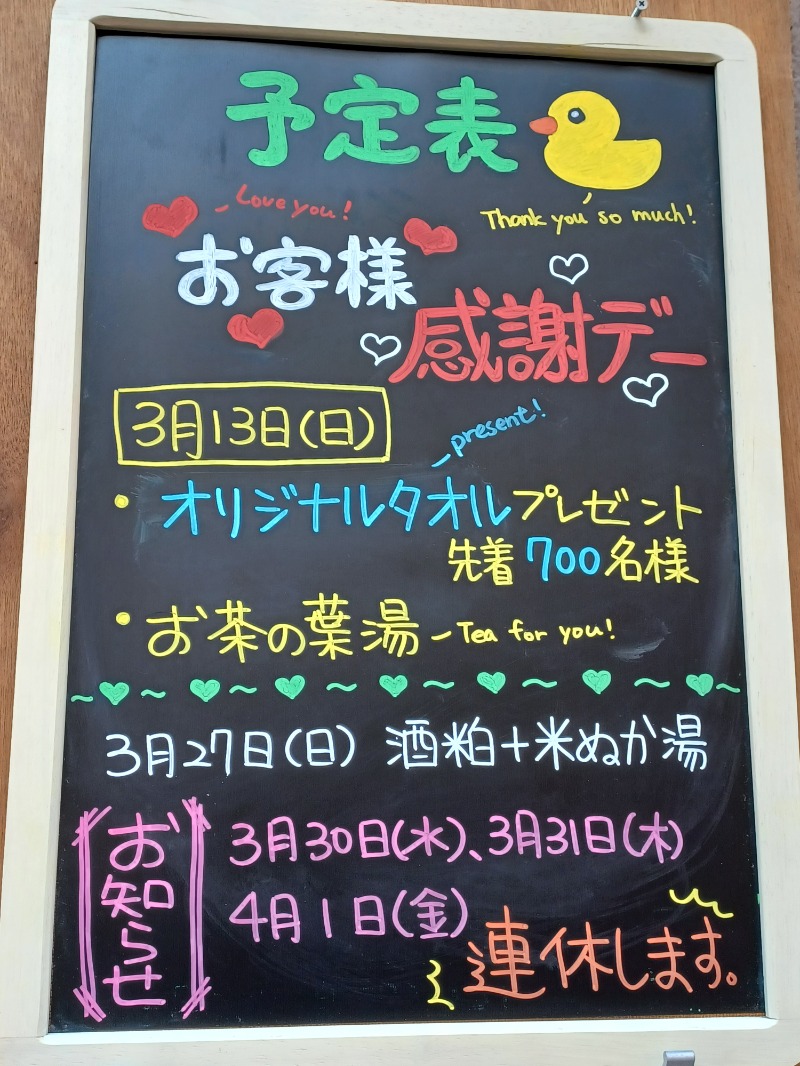 予定表
Love you!
Thank you so much!
お客様
感謝デー
3月13日(日)
present!
・オリジナルタオルプレゼント
先着700名様
・お茶の葉湯 - Tea for you!
3月27日(日) 酒粕+米ぬか湯
お知らせ
3月30日(水)、3月31日(木)
4月1日(金)
連休します。